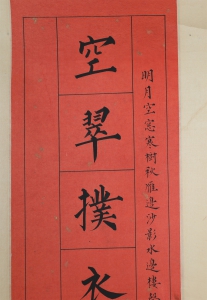 空翠撲衣
明月空窓寒樹秋雁邊沙影水邊樓